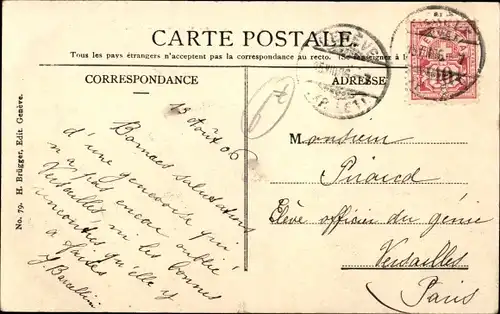 CARTE POSTALE.
Tous les pays étrangers n'acceptent pas la correspondance au recto. (Se renseigner à l
CORRESPONDANCE
ADRESSE
No. 79. H. Brügger, Edit. Genève.
13 Août 06
Bonnes salutations
d'une genevoise qui
n'a pas encore oublié
Versailles ni les bonnes
rencontres qu'elle y
a faites
J Barcellini
Monsieur
Piraud
Elève officier du génie
Versailles
Paris